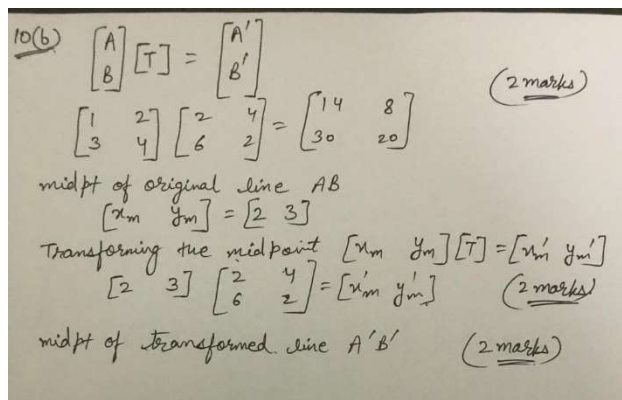 10(b) [A B] [T] = [A' B']
(2 marks)
[1 2 3 4] [2 4 6 2] = [14 8 30 20]
midpt of original line AB
[xm ym] = [2 3]
Transforming the midpoint [xm ym] [T] = [x'm y'm]
[2 3] [2 4 6 2] = [x'm y'm] (2 marks)
midpt of transformed line A'B' (2 marks)